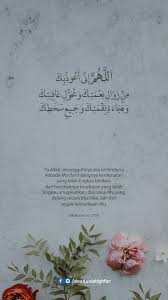 اللَّهُمَّ إِنِّي أَعُوذُ بِكَ
مِنْ زَوَالِ نِعْمَتِكَ وَتَحَوُّلِ عَافِيَتِكَ
وَفُجَاءَةِ نِقْمَتِكَ وَجَمِيعِ سَخَطِكَ
Ya Allah, sesungguhnya aku berlindung
kepada-Mu dari hilangnya kenikmatan
yang telah Engkau berikan,
dari berubahnya kesehatan yang telah
Engkau anugerahkan, dari siksa-Mu yang
datang secara tiba-tiba, dan dari
segala kemurkaan-Mu.